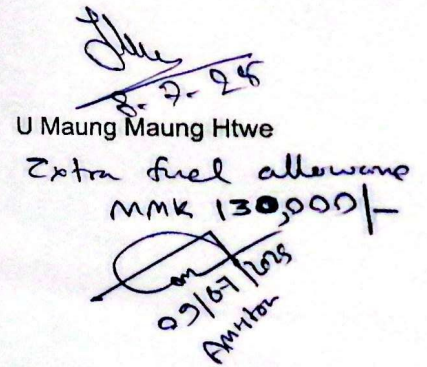 8-7-25
U Maung Maung Htwe
Extra fuel allowance
MMK 130,000/-
09/07/2025